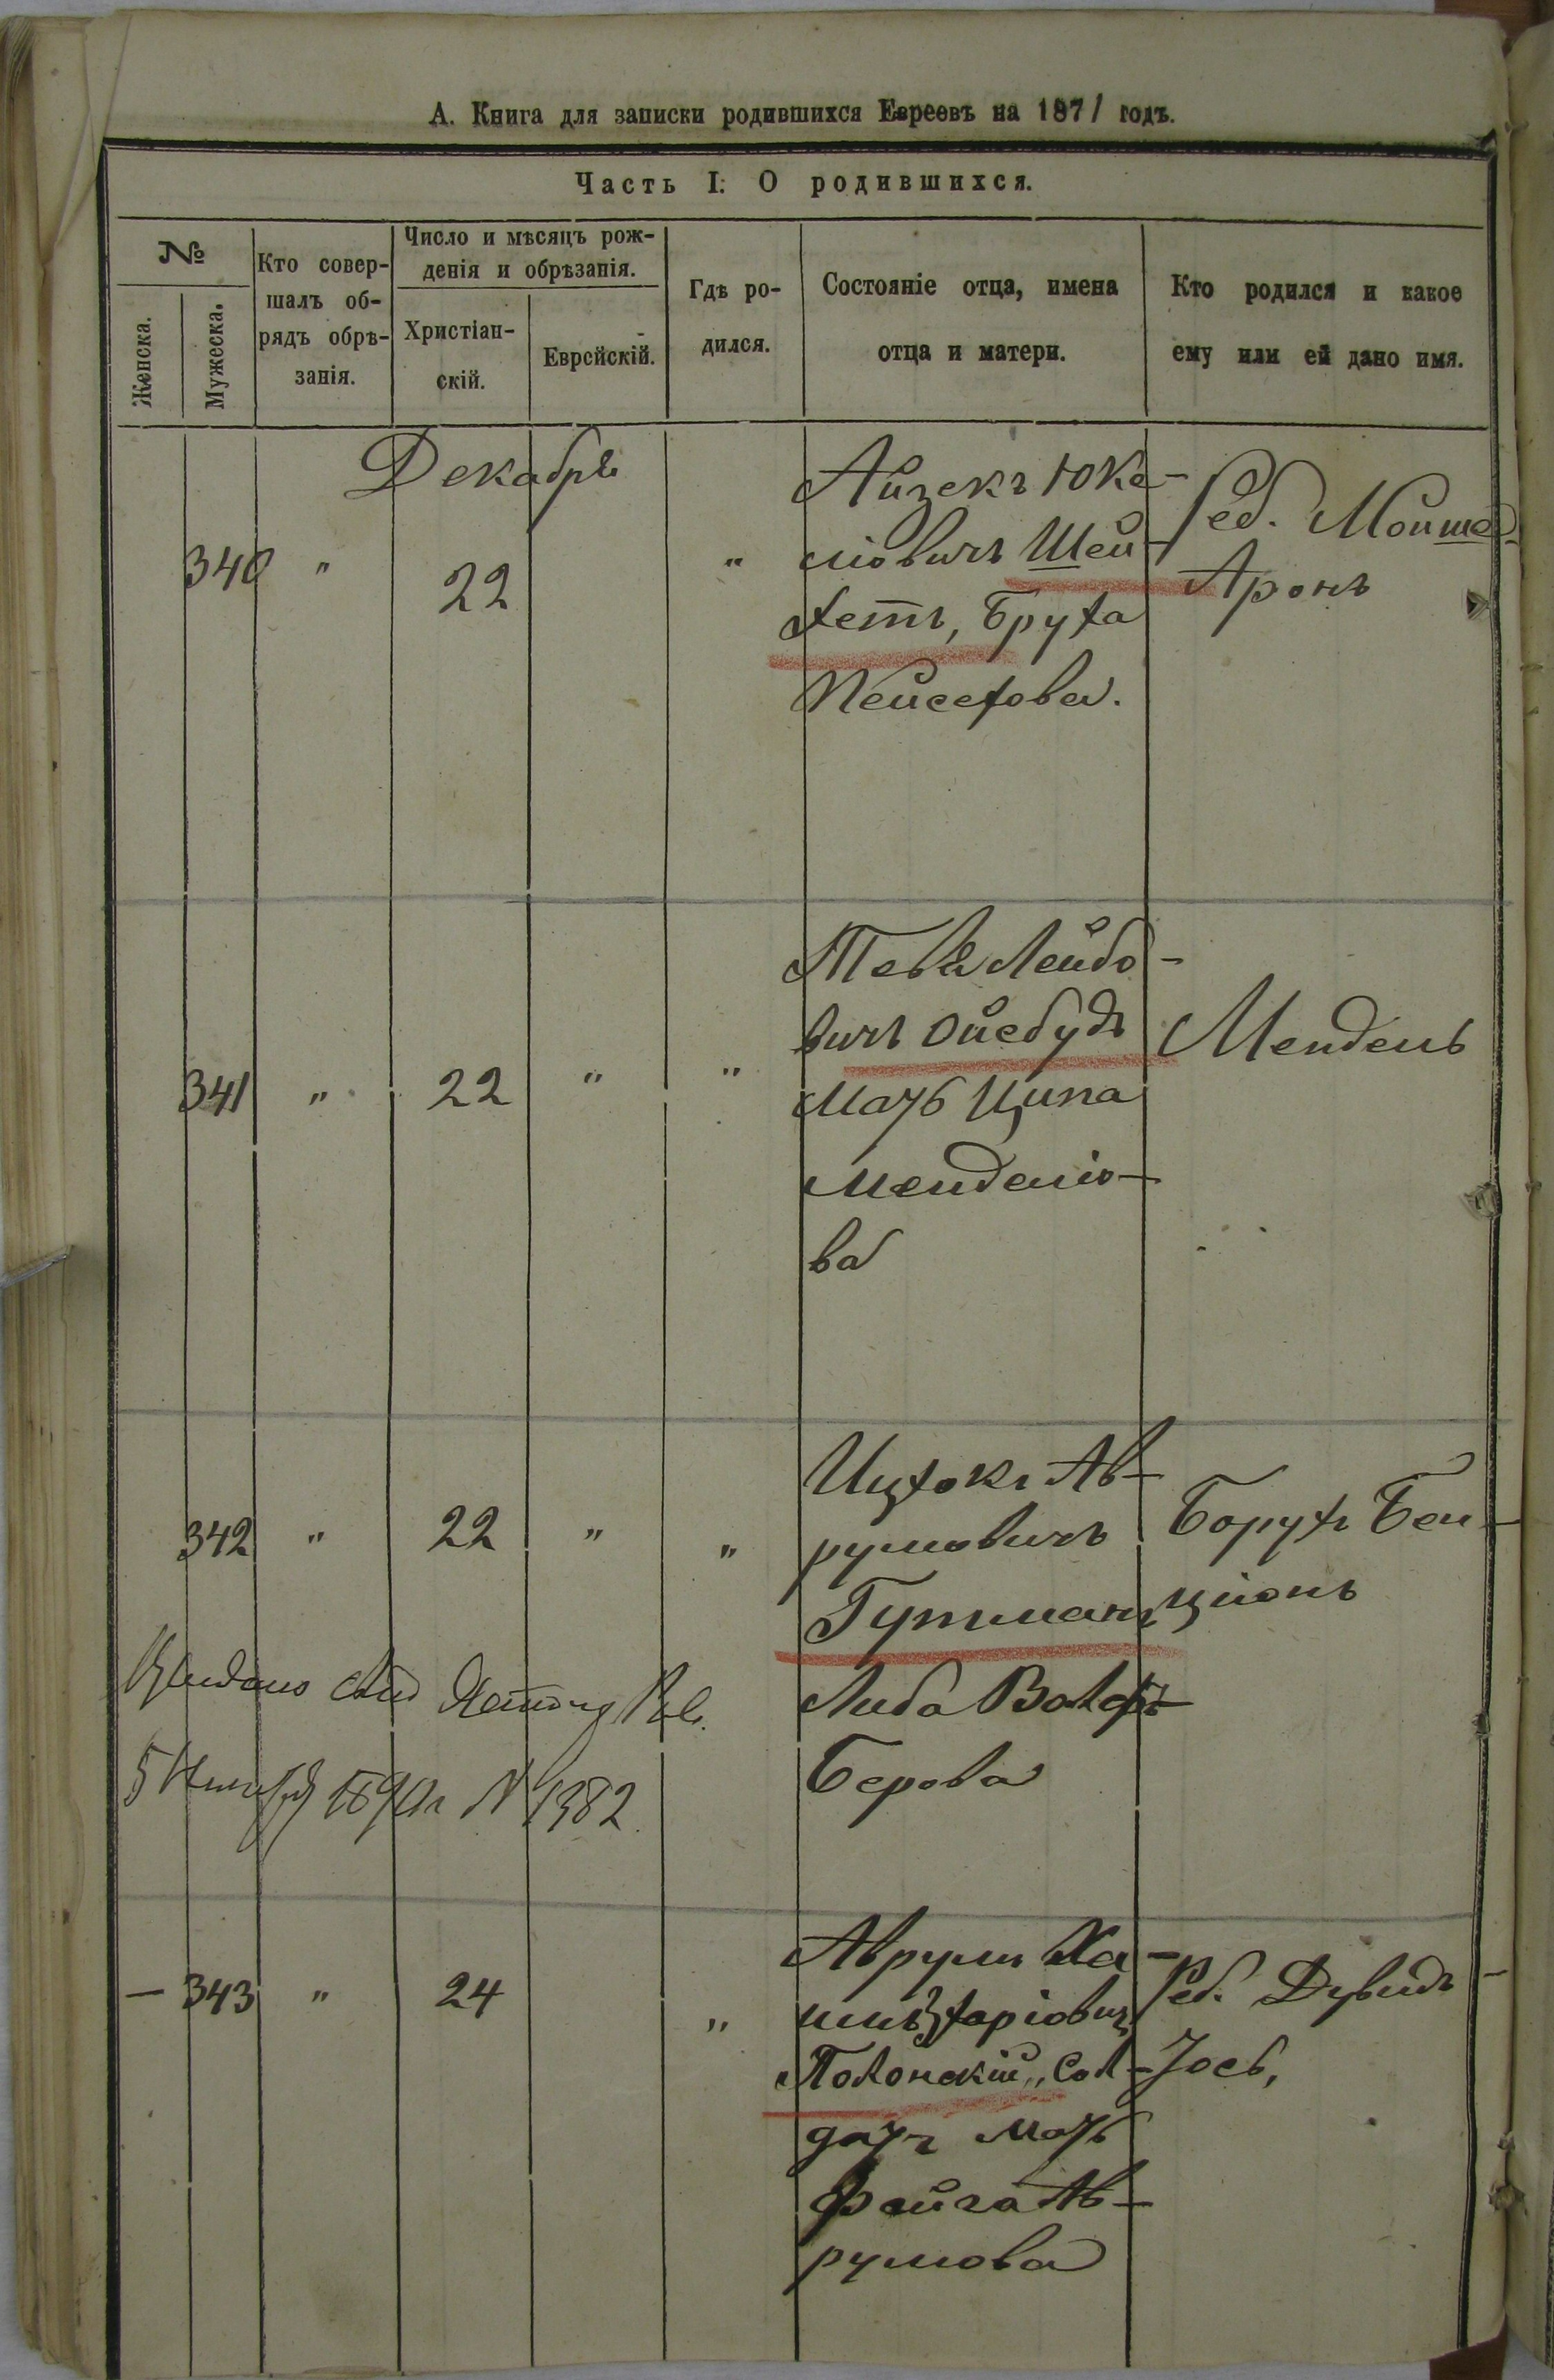 А. Книга для записки родившихся Евреевъ на 1871 годъ.
Часть I. О родившихся.
№
Женска.
Мужеска.
Кто совер-
шалъ об-
рядъ обрѣ-
занія.
Число и мѣсяцъ рож-
денія и обрѣзанія.
Христіан-
скій.
Еврейскій.
Гдѣ ро-
дился.
Состояніе отца, имена
отца и матери.
Кто родился и какое
ему или ей дано имя.
Декабря
340 " 22 "
Айзекъ Юке-
ліовичъ Шей-
хетъ, Бруха
Пейсехова.
Реб. Мойше
Аронъ
341 " 22 " "
Тевя Лейбо-
вичъ Ойсбудъ
Мать Ципа
Менделіо-
ва
Мендель
342 " 22 " "
Ицхокъ Ав-
румовичъ
Гутманъ
Либа Волфъ-
Берова
Борухъ Бен-
ціонъ
Выдано
5 1890г N 1382.
— 343 " 24 "
Аврумъ Ха-
Полонскій, Сол-
датъ Мать
Фейга Ав-
румова
Реб. Дувидъ -
Іось,